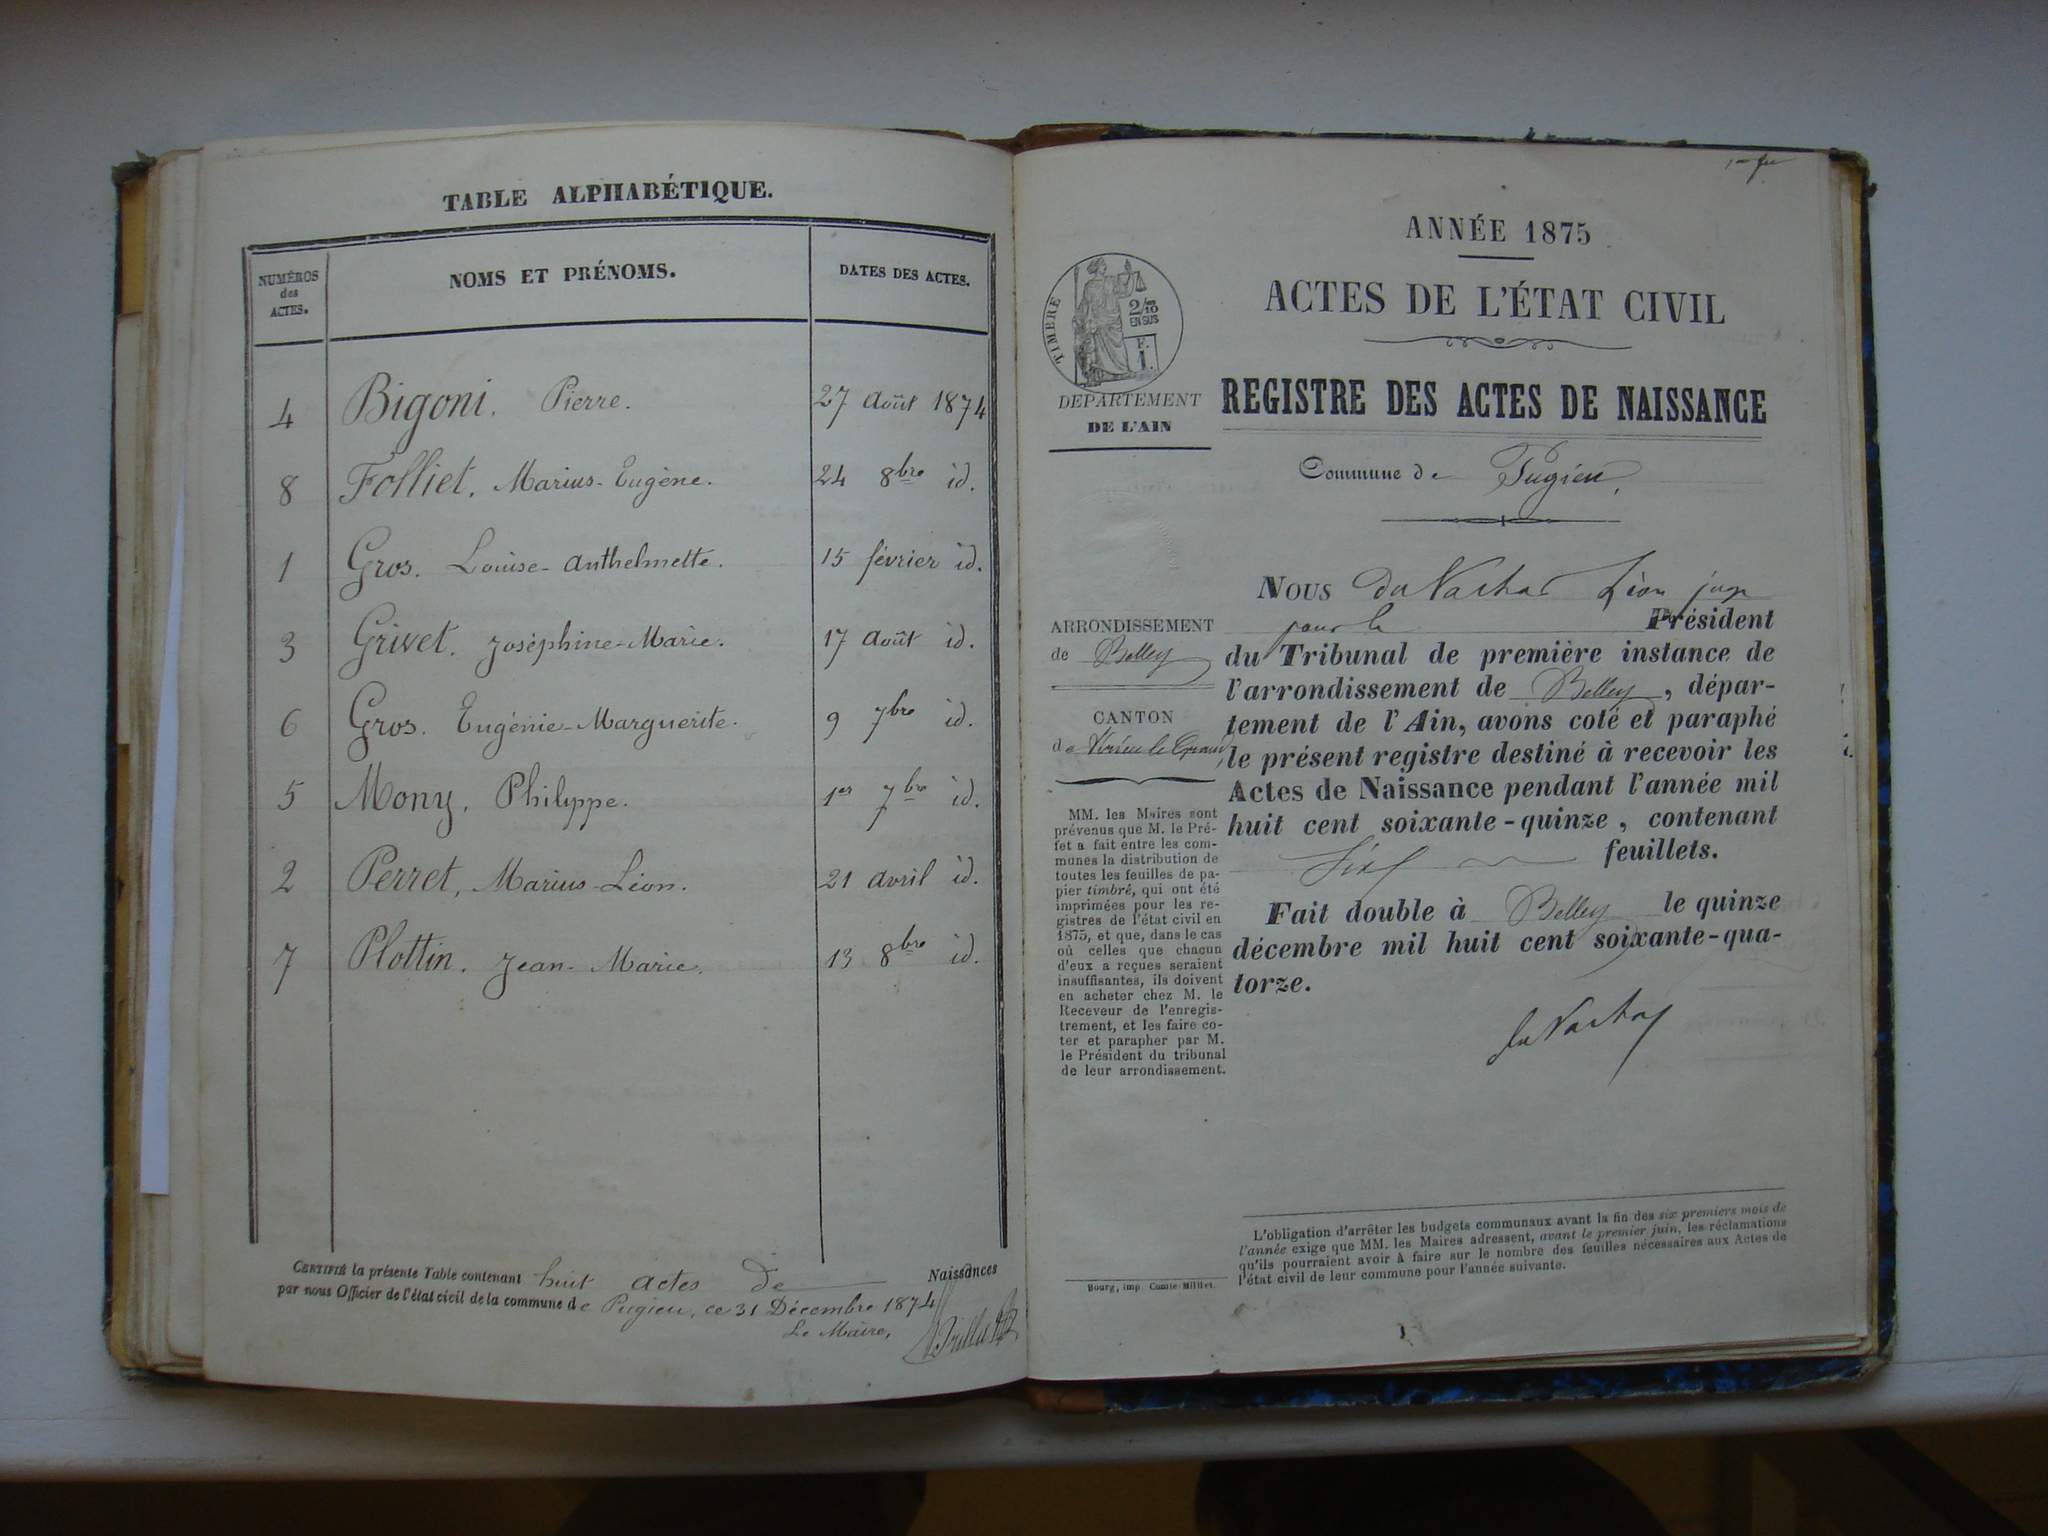 TABLE ALPHABÉTIQUE.
NUMÉROS des ACTES. NOMS ET PRÉNOMS. DATES DES ACTES.
4 Bigoni. Pierre. 27 août 1874
8 Folliet. Marius-Eugène. 24 8bre id.
1 Gros. Louise-anthelmette. 15 février id.
3 Grivet. Joséphine-Marie. 17 août id.
6 Gros. Eugénie-Marguerite. 9 7bre id.
5 Mony, Philippe. 1er 7bre id.
2 Perret, Marius-Léon. 21 avril id.
7 Plottin. Jean-Marie. 13 8bre id.
CERTIFIÉ la présente Table contenant huit actes de Naissances
par nous Officier de l'état civil de la commune de Pugieu, ce 31 Décembre 1874
Le Maire,
ANNÉE 1875
ACTES DE L'ÉTAT CIVIL
TIMBRE
2/10
EN SUS
F.
1.
DÉPARTEMENT
DE L'AIN
REGISTRE DES ACTES DE NAISSANCE
Commune de Pugieu.
ARRONDISSEMENT
de Belley
CANTON
de Virieu le Grand
MM. les Maires sont
prévenus que M. le Pré-
fet a fait entre les com-
munes la distribution de
toutes les feuilles de pa-
pier timbré, qui ont été
imprimées pour les re-
gistres de l'état civil en
1875, et que, dans le cas
où celles que chacun
d'eux a reçues seraient
insuffisantes, ils doivent
en acheter chez M. le
Receveur de l'enregis-
trement, et les faire co-
ter et parapher par M.
le Président du tribunal
de leur arrondissement.
NOUS Léon juge
pour le Président
du Tribunal de première instance de
l'arrondissement de Belley, dépar-
tement de l'Ain, avons coté et paraphé
le présent registre destiné à recevoir les
Actes de Naissance pendant l'année mil
huit cent soixante-quinze, contenant
Six feuillets.
Fait double à Belley le quinze
décembre mil huit cent soixante-qua-
torze.
L'obligation d'arrêter les budgets communaux avant la fin des six premiers mois de
l'année exige que MM. les Maires adressent, avant le premier juin, les réclamations
qu'ils pourraient avoir à faire sur le nombre des feuilles nécessaires aux Actes de
l'état civil de leur commune pour l'année suivante.
Bourg, imp. Comte-Milliet.